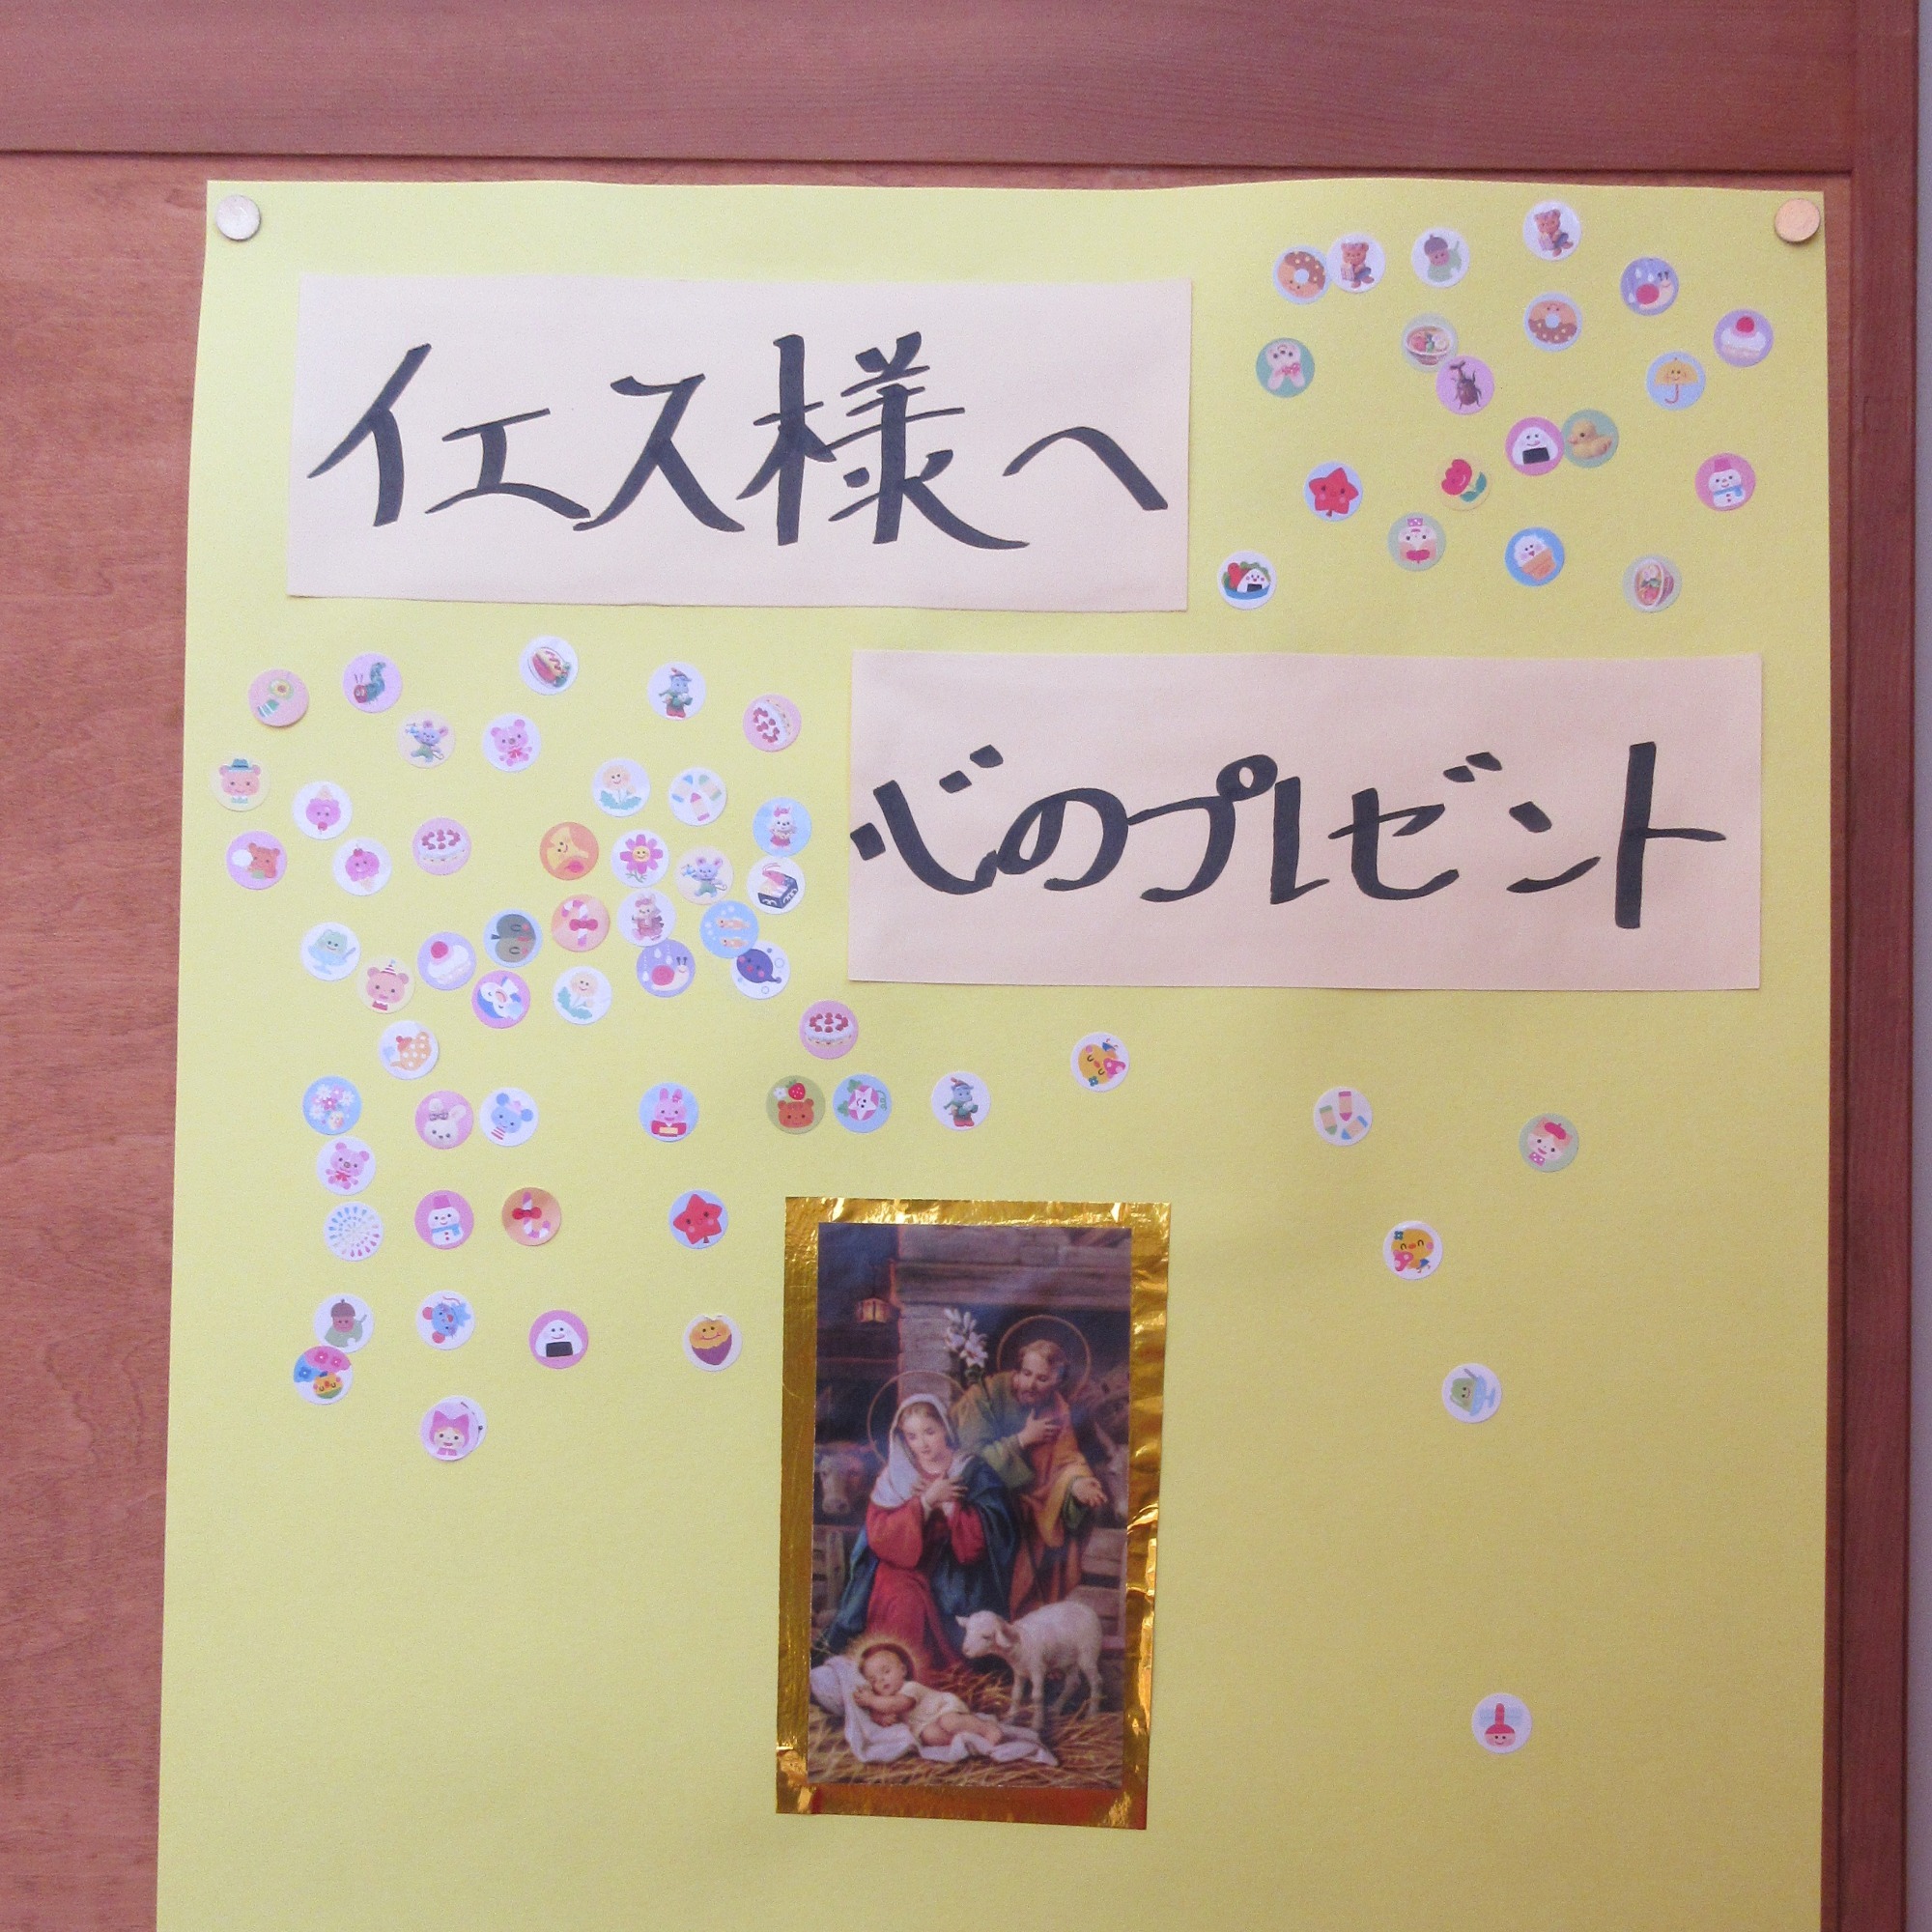 イエス様へ
心のプレゼント